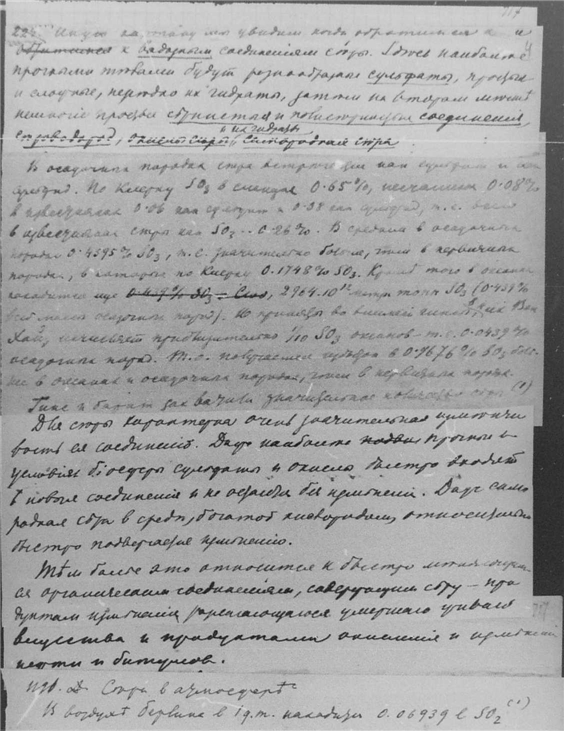 224. Иную картину мы увидим когда обратимся
к вадозным соединениям серы. Здесь наиболее
прочными телами будут разнообразные сульфаты, простые
и сложные, нередко их гидраты, затем на втором месте
немногие простые сернистые и соединения,
сероводород, окислы серы и их гидраты, самородная сера
В осадочных породах сера встречается как сульфат и как
сульфид. По Кларку SO3 в сланцах 0.65%, песчаниках 0.08%
в известняках 0.06 как сульфат и как сульфид, т.е. всего
в известняках серы как SO3 .. 0.26%. В среднем в осадочных
породах 0.4395% SO3, т.е. значительно больше, чем в первичных
породах, в которых по Кларку 0.1748% SO3. Кроме того в океане
находится еще 2964.10¹² метр. тонн SO3 (0.437%
всей массы осадочных пород). Но принимая во внимание Ван
Хайз исчисляет приблизительно 1/10 SO3 океанов т.е. 0.0439%
осадочных пород. Т.е. получается избыток в 0.7676% SO3 боль-
ше в океанах и осадочных породах, чем в первичных породах.
Гипс и барит захватили значительное количество серы (1)
Для серы характерна очень значительная изменчи
вость ея соединений. Даже наиболее прочные в
условиях биосферы сульфаты и окислы быстро входят
в новые соединения и не остаются без изменения. Даже само
родная сера в среде, богатой кислородом, относительно
быстро подвергается изменению.
Тем более это относится к быстро меняющим
ся органическим соединениям, содержащим серу – про
дуктам изменения разлагающагося умершаго живого
вещества и продуктам окисления и изменения
нефти и битумов.
Сера в атмосфере
В воздухе Берлина в 1 q.m. находится 0.06939 g SO2 (1)